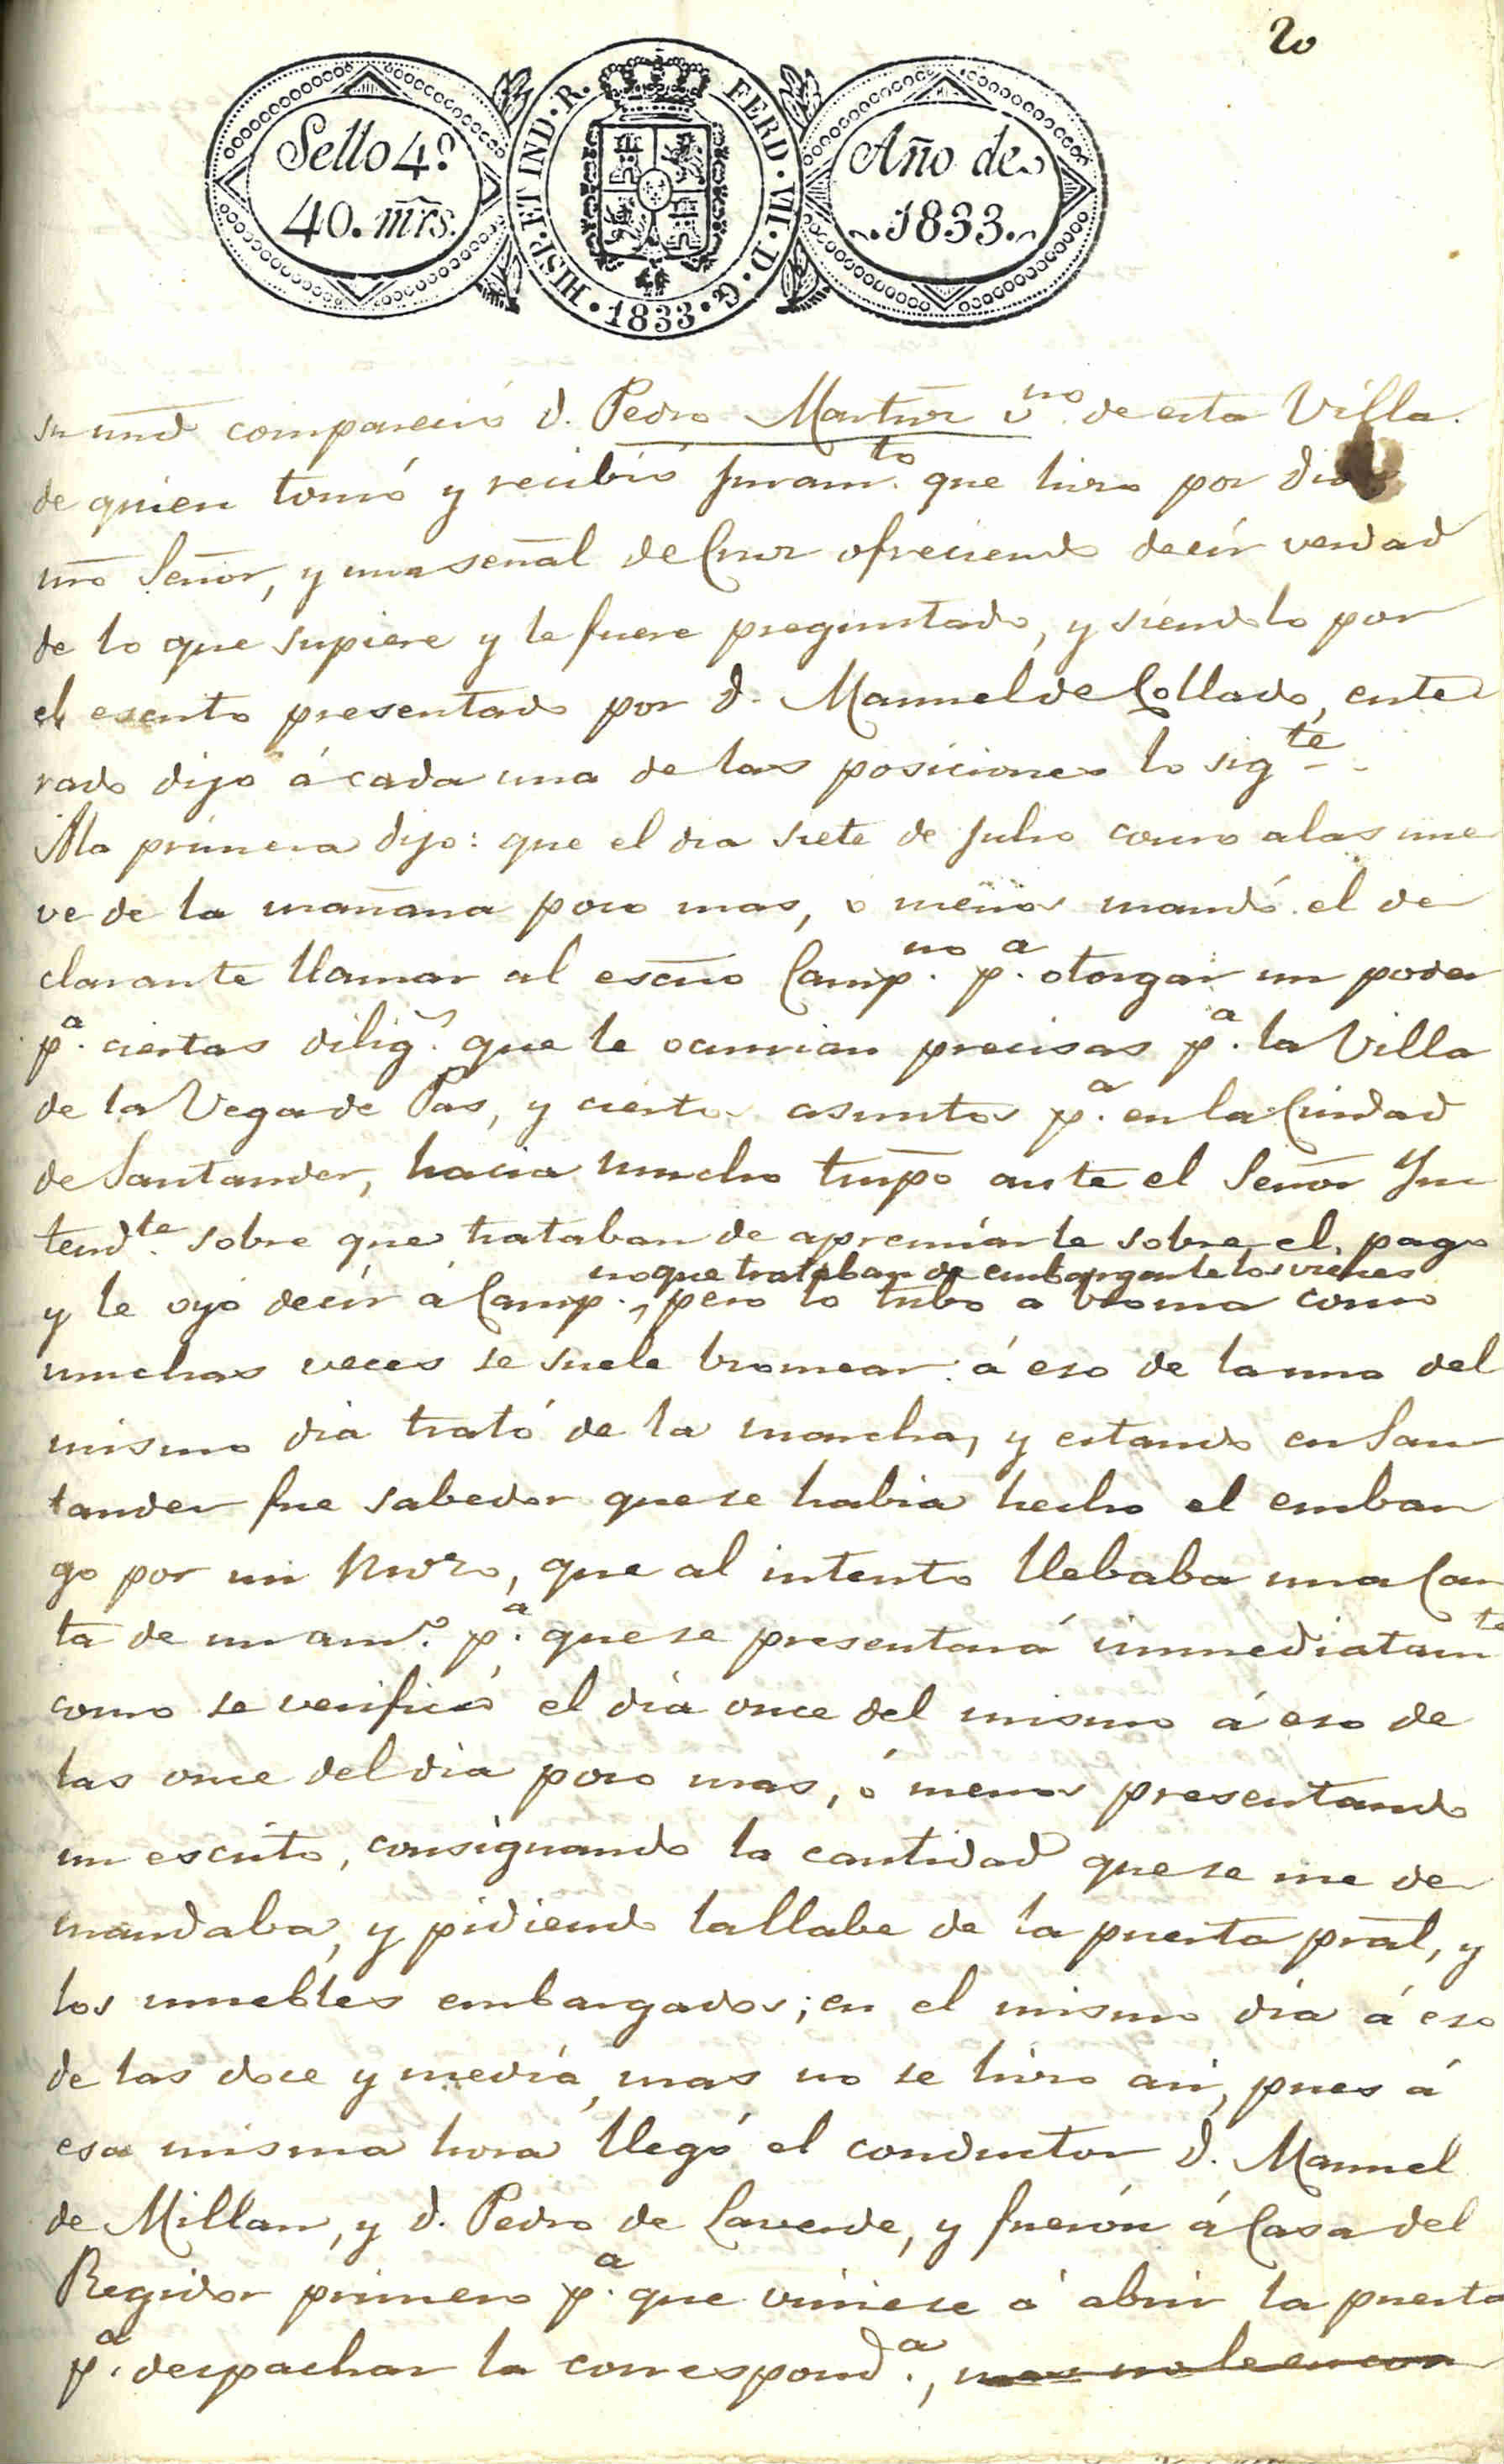 20
Sello 4º
40. mrs.
HISP. ET IND. R. FERD. VII. D. G. 1833.
Año de
1833.
su md compareció d. Pedro Martinz vno. de esta Villa.
de quien tomó y recibió juramto. que hizo por Dios
nro Señor, y una señal de Cruz ofreciendo decir verdad
de lo que supiere y le fuere preguntado, y siendolo por
el escrito presentado por d. Manuel de Collado, ente
rado dijo á cada una de las posiciones lo sigte.
Ala primera dijo: que el dia siete de Julio como alas nue
ve de la mañana poco mas, ó menos mandó el de
clarante llamar al escno Campno. pa. otorgar un poder
pa. ciertas diligs. que le ocurrian precisas pa. la Villa
de la Vega de Pas, y ciertos asuntos pa. en la Ciudad
de Santander, hacia mucho tiempo ante el Señor Yn
tendte. sobre que trataban de apremiarle sobre el pago
y le oyó decir á Campno. que trataban de embargarle los vienes
, pero lo tubo a broma como
muchas veces se suele bromear: á eso de la una del
mismo dia trató de la marcha, y estando en San
tander fue sabedor que se habia hecho el embar
go por un mozo, que al intento llebaba una Car
ta de un amo. pa. que se presentará inmediatamte
como se verificó el dia once del mismo á eso de
las once del dia poco mas, ó menos presentando
un escrito, consignando la cantidad que se me de
mandaba, y pidiendo la llabe de la puerta pral, y
los muebles embargados; en el mismo dia á eso
de las doce y media, mas no se hizo asi, pues á
esa misma hora llegó el conductor d. Manuel
de Millan, y d. Pedro de Laverde, y fuerón á Casa del
Regidor primero pa. que viniese á abrir la puerta
pa. despachar la corresponda., mas no le encon